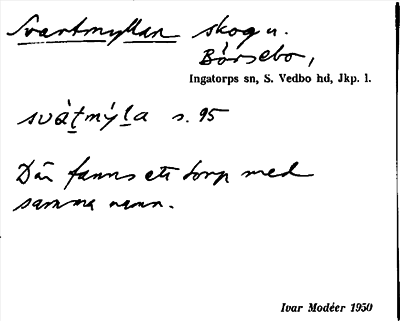 Svartmyllan skog u.
Börsebo,
Ingatorps sn, S. Vedbo hd, Jkp. l.
svàtmýla s. 95
Där fanns ett torp med
samma namn.
Ivar Modéer 1950